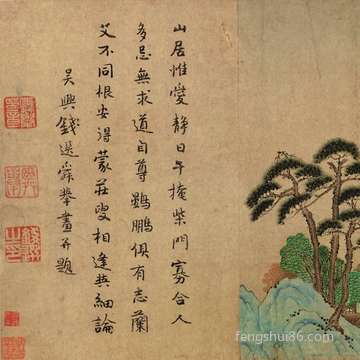 山居惟愛靜日午掩柴門寡合人
多忌無求道自尊鷃鵬俱有志蘭
艾不同根安得蒙莊叟相逢與細論
吳興錢選舜舉畫并題
fengshui86.com